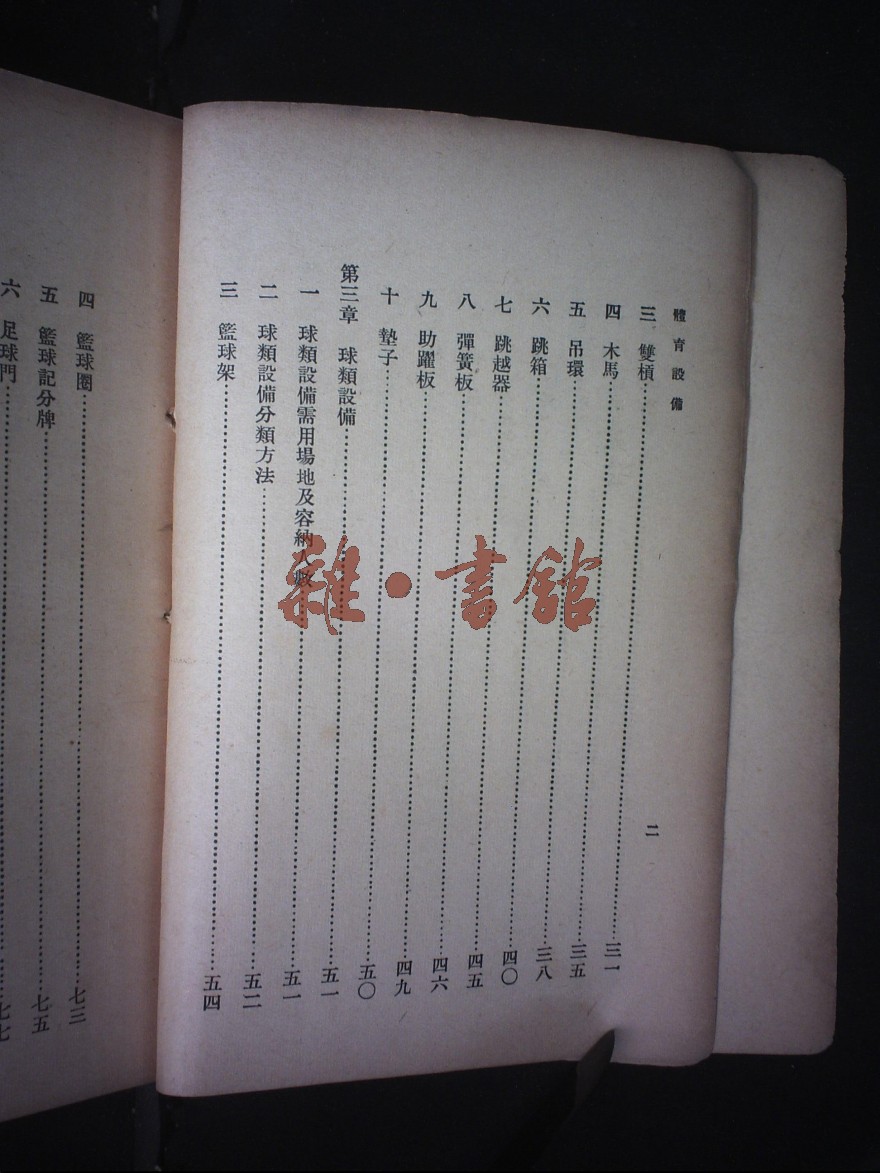 體育設備 二
三 雙槓……三一
四 木馬……三五
五 吊環……三八
六 跳箱……四〇
七 跳越器……四五
八 彈簧板……四六
九 助躍板……四九
十 墊子……五〇
第三章 球類設備……五一
一 球類設備需用場地及容納人數……五一
二 球類設備分類方法……五二
三 籃球架……五四
四 籃球圈……七三
五 籃球記分牌……七五
六 足球門……七七
雜·書館